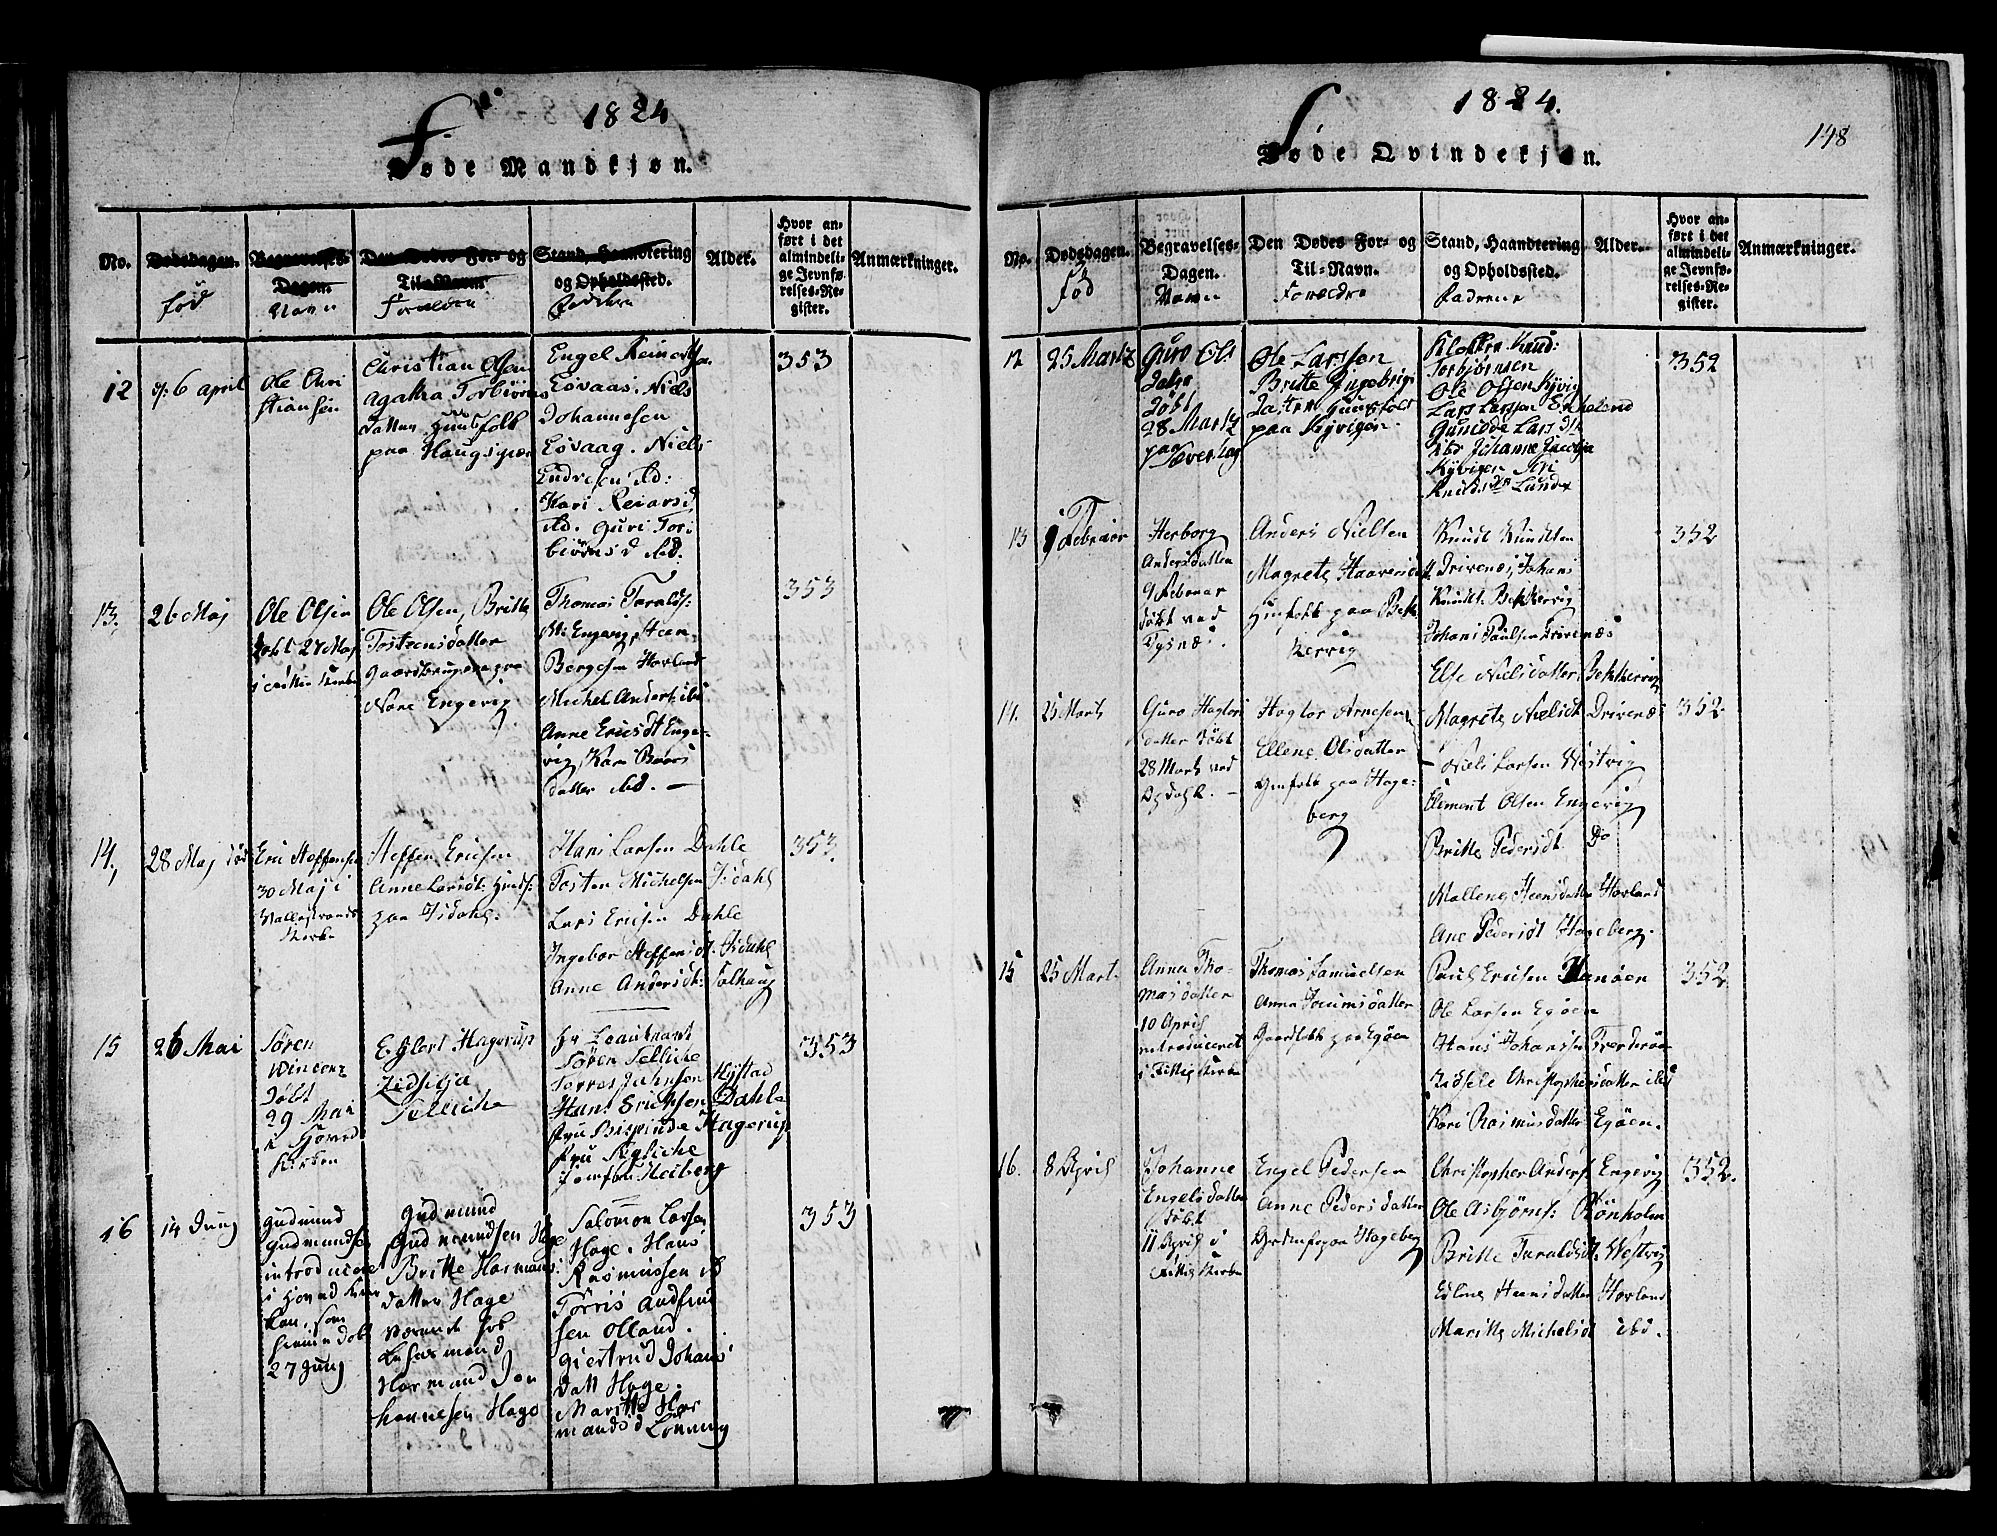 1824
Føde Mandkjøn.
No.
Dødsdagen.
fød
Begravelses-
Dagen.
Navn
Den Dødes For- og
Til-Navn.
Forældre
Stand, Haandtering
og Opholdssted.
Faddere
Alder.
Hvor an-
ført i det
almindeli-
ge Jevnfø-
relses-Re-
gister.
Anmærkninger.
12
6 april
Ole Chri
stiansen
Christian Olsen
Agatha Torbiörns
datter Huusfolk
paa Haugs
Engel Reinerts
Eovaag. Niels
Johannesen
Eovaag. Niels
Endresen ibd:
Kari Reiars d
ibd. Guri Tor
biörns d ibd.
353
13,
26 Maj
Ole Olsen
döbt 27 Maj
i Fittie Kirke
Ole Olsen, Britte
Tostensdatter
Gaardbrugere paa
Nore Engevig
Thomas Taralds:
Engevig, Steen
Bergesen Hovland
Michel Anders: ibd
Anne Ericsdt Enge-
vig, Kari Baars
datter ibd. —
353
14,
28 Maj
Eric Steffensen
30 Maj i
Vallestrands
Kirke
Steffen Ericsen
Anne Larsdt: Huusf:
paa Isdahl.
Hans Larsen Dahle
Tosten Michelsen Isdahl
Lars Ericsen Dahle
Ingebor Steffensdt. Isdahl
Anne Andersdt: Solhaug
353.
15
26 Mai
Søren
Wincenz
Döbt
29 Mai
i Hoved
Kirken
Eylert Hagerup
Zidselja
Telliche
Hr Leautnant
Søren Telliche
Torres Johnson Rystad
Hans Erichsen Dahle
fru Hagerup
fru Telliche
Jomfru Heiberg
353
16
14 Juny
Gudmund
Gudmundsen
introducere
i Hoved Kir
ken, som
hiemmedöbt
27 Juny
Gudmund
Gudmundsen Hage
Britte Hormans
datter Hage
Værende
Hormand Jo
hannesen Hage
Salomon Larsen
Hage. Hans
Rasmussen ib
Törris Andfind
sen Olland.
Giertrud Johans
datt Hage.
Maritte Hor
mandsd Lönning
353
1824.
148
Føde Qvindekjøn.
No.
Dødsdagen.
fød
Begravelses-
Dagen.
Navn
Den Dødes For- og
Til-Navn.
Forældre
Stand, Haandtering
og Opholdssted.
Fadrene
Alder.
Hvor an-
ført i det
almindeli-
ge Jevnfø-
relses-Re-
gister.
Anmærkninger.
12
25 Martz
Guro Ols
Datter
Döbt
28 Martz
paa
Ole Larssen
Britte Ingebrigts
Datter Huusfolk
paa Kyvigen.
Klokker Knud:
Torbjörnsen
Ole Olsen Kyvig
Lars Larssen Echeland
Gunilde Lars Dtr
ibd Johanne Jacobs
Kyvigen Siri
Knuds Dtr Lunde
352
13
9 Februar
Herborg
Andersdatter
9 Februar
döbt ved
Tysnæs.
Anders Nielsen
Magrete Haavers
Huusfolk paa Bek
kervig
Knudt Knudtsen
Drivenes, Johans
Knudts Bekkervig
Johans Paulsen Drivenæs
Else Nielsdatter, Bekkervig
352
14.
25 Marts
Guro Hagtors
datter Döbt
28 Marts ved
Opdahl. —
Hagtor Arnesen
Ellene Olsdatter
Huusfolk paa Hage-
berg
Magrete Nielsdt Drivenæs
Niels Larsen Westvig
Clement Olsen Engevig
Britte Pedersdt Do
Mallene Steensdatter Hovland
Ane Pedersdt Hageberg.
352
15
25 Mart.
Anna Tho-
masdatter
10 April
introduceret
i Fittie Kirke
Thomas Samuelsen
Anna Joenmsdatter
Huusfolk paa Egöen
Paul Ericsen Hanöen
Ole Larsen Egöen
Hans Johansen Fierderöe
Zidsele Christophersdatter ibd
Kari Rasmusdatter Egöen.
352
16.
8 April
Johanne
Engelsdatter
Döbt
11 April i
Fittie Kirke
Engel Pedersen
Anne Pedersdatter
paa Hageberg
Christopher Anders. Engevig
Ole Asbjörns: Rönholm
Britte Taraldsdt. Westvig
Steensdatter Hovland
Maritte Michelsdt ibd.
352.